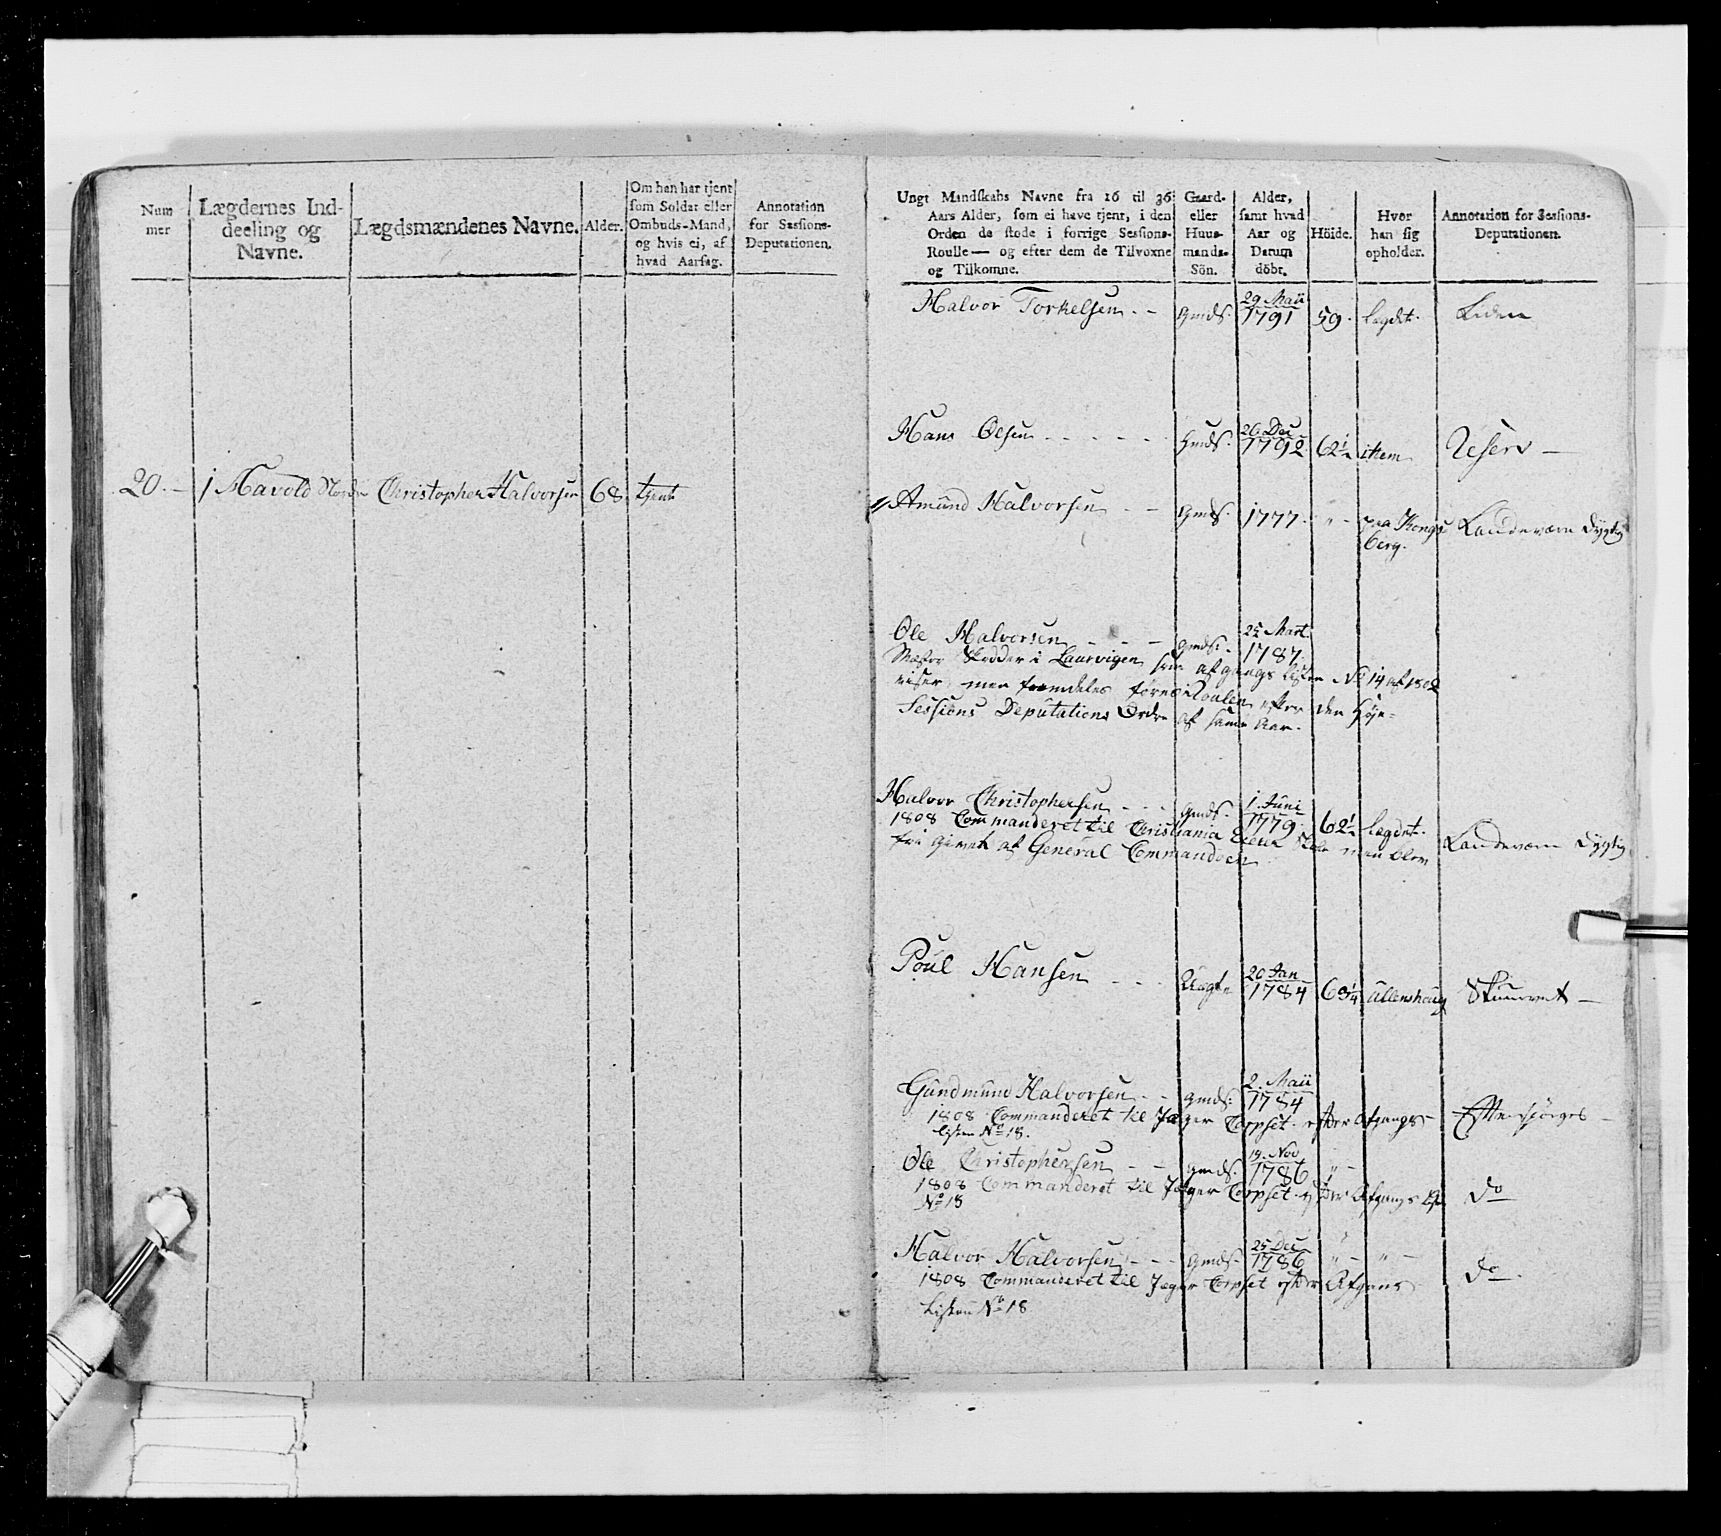 Num
mer
Lægdernes Ind-
deeling og
Navne.
Lægdsmændenes Navne.
Alder.
Om han har tjent
som Soldat eller
Ombuds-Mand,
og hvis ei, af
hvad Aarsag.
Annotation
for Sessions-
Deputationen.
20. 1 Christopher Halvorsen 68. tjent
Ungt Mandskabs Navne fra 16 til 36
Aars Alder, som ei have tjent, i den
Orden de stode i forrige Sessions-
Roulle— og efter dem de Tilvoxne
og Tilkomne.
Gaard-
eller
Huus-
mands-
Sön.
Alder,
samt hvad
Aar og
Datum
döbt.
Höide.
Hvor
han sig
opholder.
Annotation for Sessions-
Deputationen.
29 Maii
Halvor Torkelsen Gmds. 1791 59. lægdet. Liden
26 Dec
Hans Olsen Hmds. 1792 62½ item Reserv
Amund Halvorsen Gmds. 1777. " paa Kongs
berg. Landeværn Dygtig
25 Mart
Ole Halvorsen Gmds. 1787.
i Laurvigen afgangs Listen No 14 af 1802
viser, men fremdeles føres i Roulen efter den Høje=
Sessions Deputations Ordre af samme Aar.
1. Juni
Halvor Christophersen Gmds. 1779. 62½ lægdet.
1808 Commanderet til Christiania men blev
fri givet af General Commandoen Landeværn Dygtig
20 Jan
Poul Hansen 1784 63¼ Ullenshoug
2. Maii
Gundmund Halvorsen Gmds. 1784
1808 Commanderet til Jæger Corpset efter Afgangs- Efterspørges
Listen No 18.
19. Nov
Ole Christophersen Gmds. 1786 "
1808 Commanderet til Jæger Corpset efter Afgangs do
No 18
25 Dec
Halvor Halvorsen Gmds. 1786 " "
1808 Commanderet til Jæger Corpset efter Afgans do
Listen No 18